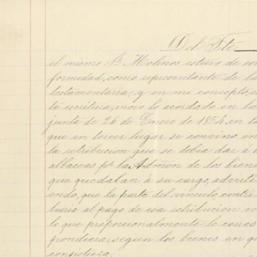 Del Fte
el mismo Sr Molinos estuvo de con
formidad, como representante de la
testamentaria, y en mi concepto, es
ta
junta de 26 de Enero de 1854, en la
que en tercer lugar se convino en
la retribucion que se debia dar á los
albaceas por la Admon de los bienes
que quedaban á su cargo, advirti
endo, que la parte del vinculo, contri
buiria al pago de esa retribucion en
lo que proporcionalmente le corres
pondiera, segun los bienes en que
consistiera